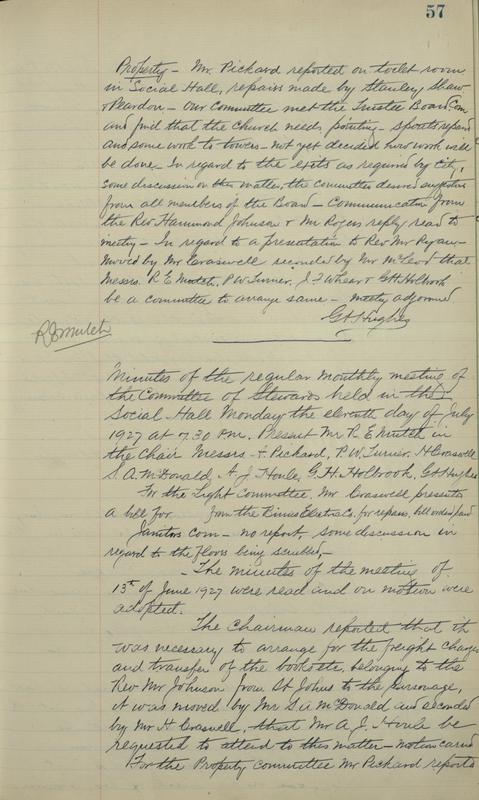 57
Property - Mr. Pickard reported on toilet room
in Social Hall, repairs made by Stanley Shaw
& Peardon - Our Committee met the Trustee Board Com
and find that the Church needs pointing - spouts repairs
and some work to towers - not yet decided how work will
be done - In regard to the exits as required by City,
some discussion on this matter, the committee desired
from all members of the Board - Communication from
the Rev Hammond Johnson & Mr Rogers reply read to
meeting - In regard to a presentation to Rev Mr Ryan -
Moved by Mr Craswell seconded by Mr McLeod that
Messrs. R E Mutch, P W Turner, J. F Whear & G H Holbrook
be a committee to arrange same - meeting adjourned
G H Hughes
R E Mutch
Minutes of the regular monthly meeting of
the Committee of Stewards held in the
Social Hall Monday the eleventh day of July
1927 at 7.30 P.M. Present Mr. R. E Mutch in
the Chair Messrs - Pickard, P. W. Turner, H Craswell
S. A. McDonald, A. J Houle, G. H. Holbrook, G H Hughes
For the Light Committee, Mr Craswell presents
a bill for from the Electric Co. for repairs, bill ordered paid
Janitors Com - no report, some discussion in
regard to the floors being scrubbed, -
- The minutes of the meeting of
13th of June 1927 were read and on motion were
adopted.
The Chairman reported that it
was necessary to arrange for the freight charges
and transfer of the books etc. belonging to the
Rev Mr Johnson from St Johns to the parsonage,
it was moved by Mr S. A McDonald and seconded
by Mr H Craswell, that Mr A. J. Houle be
requested to attend to this matter - motion carried
For the Property committee Mr Pickard reports